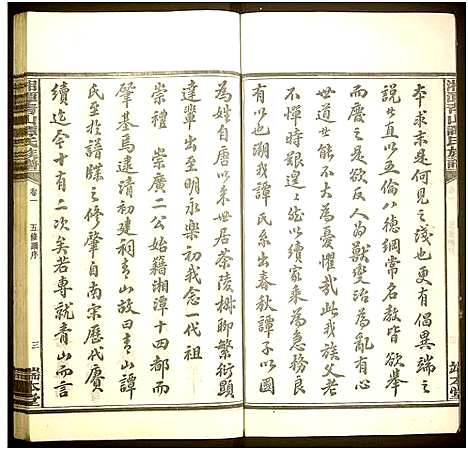 湘潭青山譚氏族譜
本求末是何見之淺也更有倡異端之
說者直以五倫八德綱常名教皆欲舉
而廢之是欲人為獸變治為亂有心
達世能不大為憂懼哉此我族父老
不憚時艱以續家乘為急務良
有以也溯我譚氏系出春秋譚子以國
端本堂
為姓自唐以來世居茶陵樹聊繁衍顯
達輩出至明永樂初我念一代祖
崇禮 崇廣二公始籍湘潭十四都而
肇基馬逮清初建祠青山故曰青山譚
氏至於譜牒之修肇自南宋歷代賡
續迄今十有二次矣若專就青山而言
湘潭青山譚氏族譜
卷一
五修譜序
三
端本堂